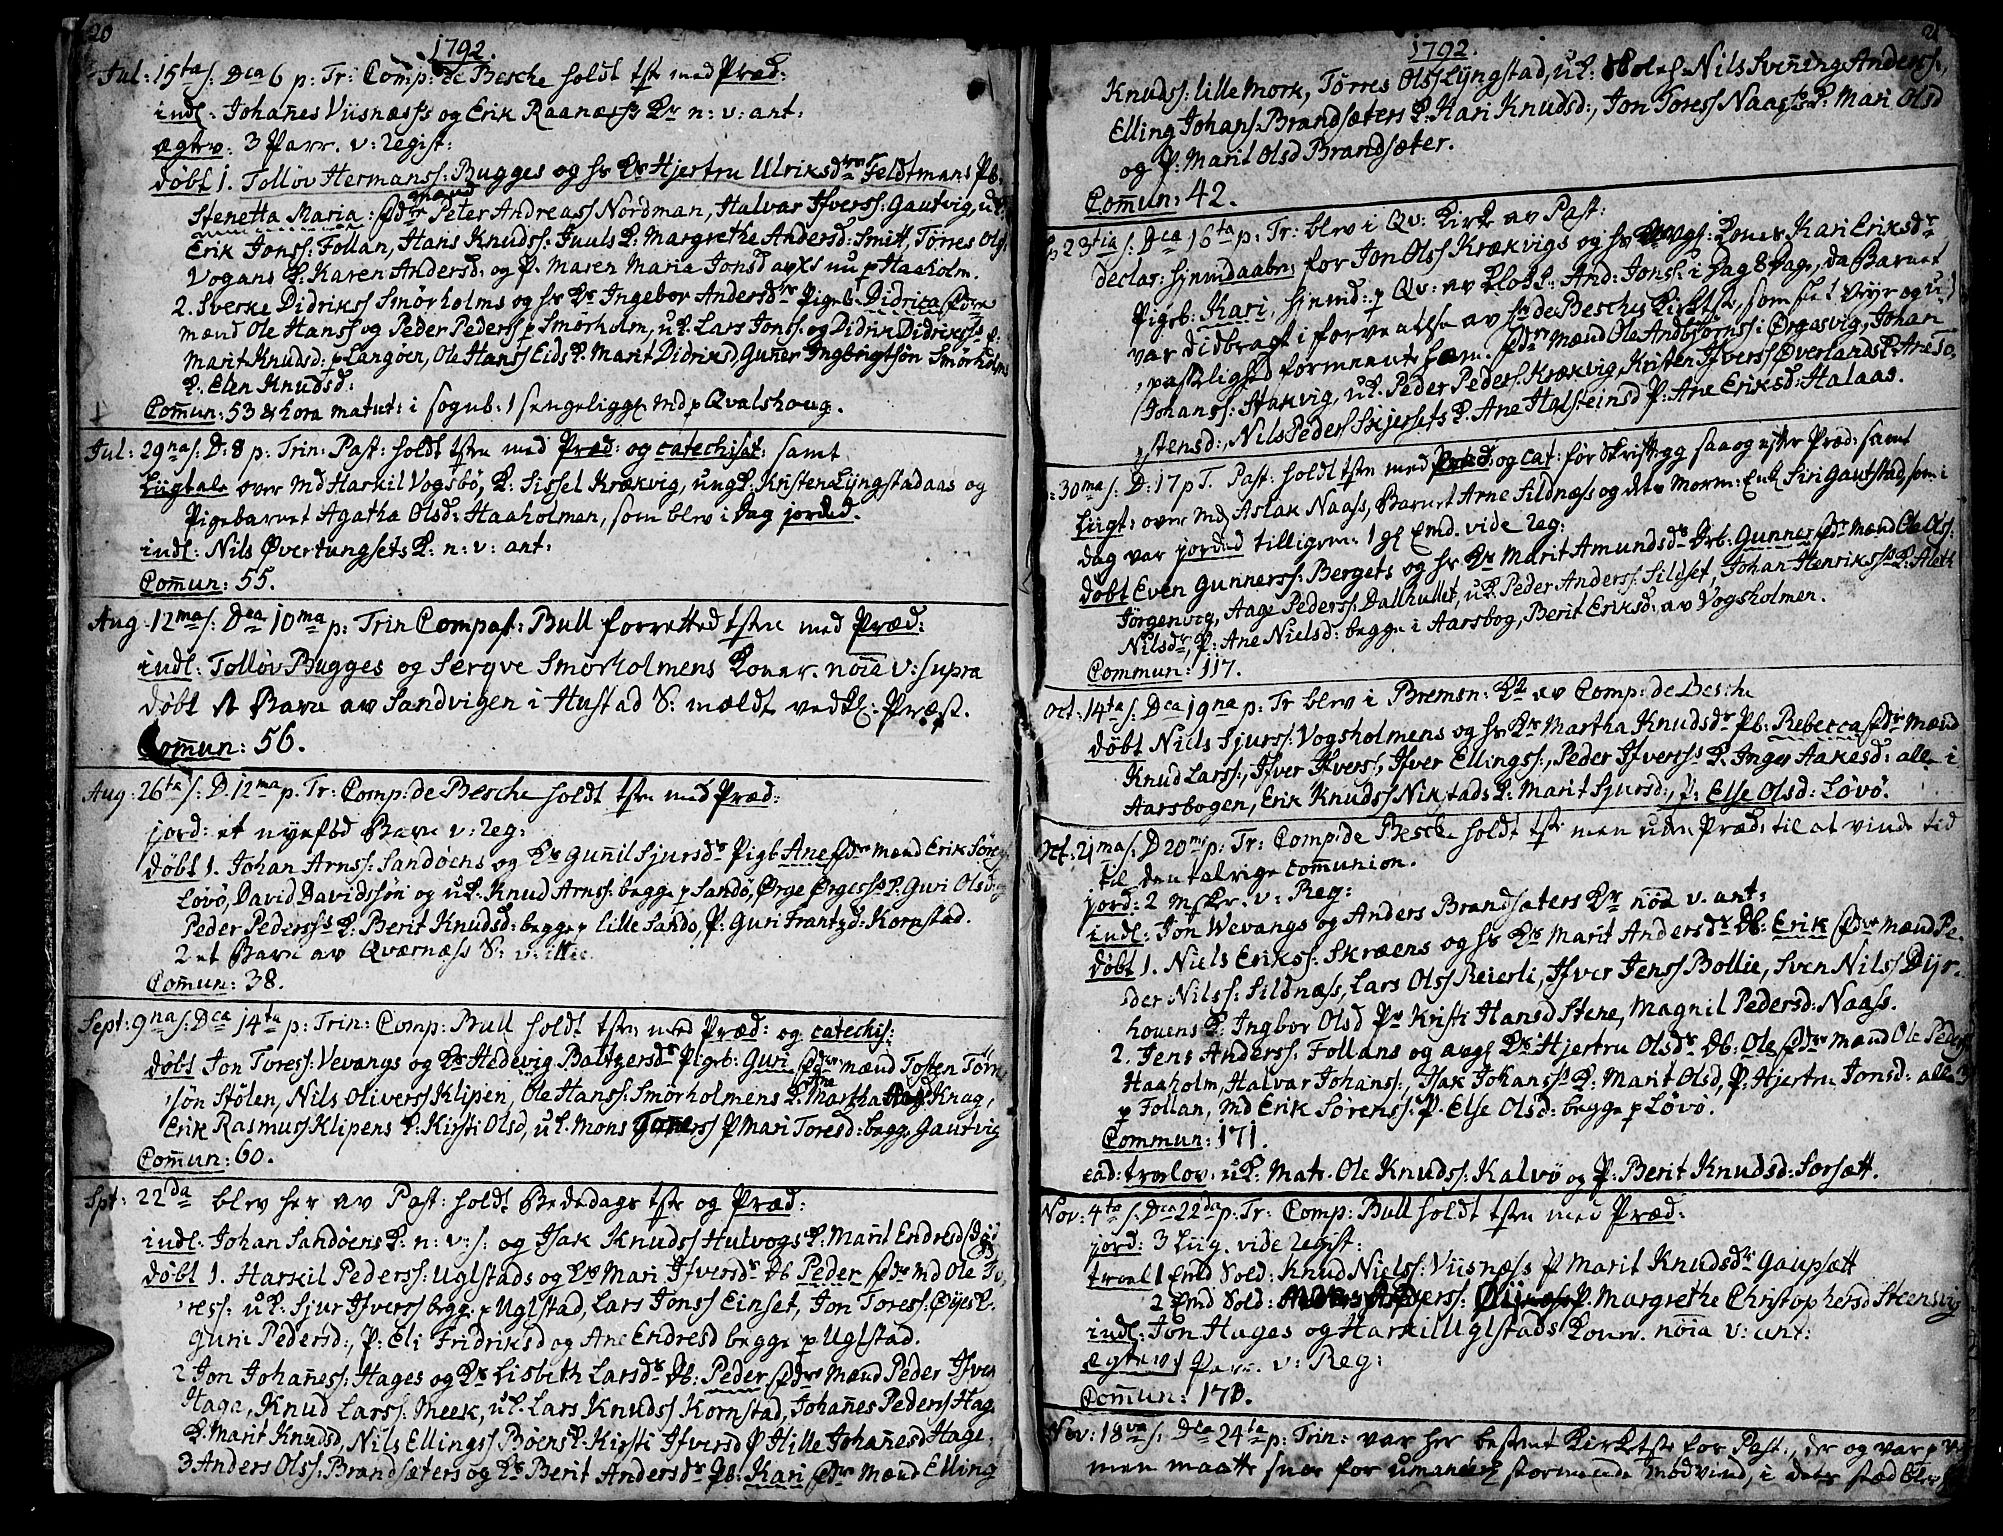 20
1792.
Jul: 15ta S: Dca 6 p: Tr: Comp: de Besche holdt tste med Præd:
indl: Johañes Viisnæss og Erik Raanæss Kr n: v: ant:
ægtev: 3 Parr. v: Regist:
døbt 1. Tolløv Hermanss: Bugges og hs Kr Hjertru Ulriksdr Feldtmans Pb:
Stenetta Maria: Fdr Peter Andreass Nordman, Halvar Ifverss: Gautvig, uK:
Erik Jonss: Follan, Hans Knudss: Juuls K: Margrethe Andersd: Smitt, Tøres Ols
Vogans K: Karen Andersd: og P. Maren Maria Jonsd nu p Haaholm.
2. Sverke Didrikss Smörholms og hs Kr Ingebor Andersdr Pigeb: Didrica Fdre
mænd Ole Hanss og Peder Pederss p Smörholm, uK: Lars Jonss: og Didrik Didrikss
Marit Knudsd: p Langöen, Ole Hanss Eids K: Marit Didriksd, Guner Ingbrigtsön Smörholms
K. Elen Knudsd:
Comun: 53 & hora matut: i sognb: 1 sengeliggl Md p Qvalshoug.
Jul: 29na S: D: 8 p: Trin: Past: holdt tste med Præd: og catechiset: samt
Liigtale over Md Harkil Vogsbö, K: Sissel Krækvig, ungK: Kristen Lyngstadaas og
Pigebarnet Agatha Olsd: Haaholmen, som blev i Dag jorded.
indl: Nils Øvertungsets K: n: v: ant:
Comun: 55.
Aug. 12ma S: Dca 10ma p: Trin Compast: Bull forretted tste med Præd:
indl: Tolløv Bugges og Sergve Smörholmens Koner. noïe v: supra
døbt 1 Barn av Sandvigen i Hustad S: mældt vedk: Præst.
Comun: 56.
Aug: 26ta S: D. 12ma p. Tr: Comp: de Besche holdt tste med Præd:
jord: et nyefød Barn v: Reg:
døbt 1. Johan Arnss: Sandöens og Kr Guñil Sjursdr Pigb: Ane Fdre mænd Erik Söreg
Lövö, David Davidssön og uK. Knud Arnss: begge p Sandö, Ørge Ørgess K: Guri Olsd,
Peder Pederss K: Berit Knudsd: begge p lille Sandö, P: Guri Frantzd: Kornstad.
2 et Barn av Qværnæss S: v: ittie.
Comun: 38.
Sept: 9na S: Dca 14ta p: Trin: Comp: Bull holdt tste med Præd: og catechis:
døbt Jon Toress: Vevangs og Kr Hedevig Baltzersdr Pigeb: Guri Fdre mænd Tosten Törn
sön Stölen, Nils Oliverss Klipen, Ole Hanss: Smörholmens K: Martha Knag,
Erik Rasmuss Klipens K: Kirsti Olsd, uK. Mons P Mari Toresd: begge Gautvig
Comun: 60.
Spt: 22da blev her av Past: holdt Bededags tste og Præd:
indl: Johan Sandöens K: n: v: s: og Isak Knudss Hulvogs K: Marit Endresd
døbt 1. Harkil Pederss: Uglstads og Kr Mari Ifversdr Db Peder Fdre Md Ole To,
ress: uK: Sjur Ifverss begge p Uglstad, Lars Jonss Einset, Jon Toress: Øyes K:
Guri Pedersd:, P: Eli Fridriksd og Ane Endresd begge p Uglstad.
2 Jon Johañess: Hages og Kr Lisbeth Larsdr Db: Peder Fdre mænd Peder Ifver
Haga, Knud Larss: Meek, uK. Lars Knudss Kornstad, Johañes Pederss Hag
K: Marit Knudsd, Nils Ellingss Böens K: Kirsti Ifversd P Hille Johañesd Hage.
3 Anders Olss: Brandsæters og Kr Berit Andersdr Pb: Kari Fdre mænd Elling
1792.
Knudss: lille Mork, Torres Olss Lyngstad, uK: Nils Sviñing Anderss,
Elling Johans: Brandsæters K. Kari Knudsd:, Jon Toress Naas K: Mari Olsd
og P: Marit Olsd Brandsæter.
Comun: 42.
23tia S: Dca 16ta p: Tr: blev i Qv: Kirk av Past:
declar: hjemdaabn: for Jon Olss Krækvigs og hs Kari Eriksdr
Pigeb: Kari, hjemd: p Qv: av Klokk: And: Jons: i Dag 8 Dage, da Barnet
var didbragt i forventelse av de Besches Kirktste, som slet Veyr og u:
passelighed formeente ham. Fdre mænd Ole Andbiörnss: i Ørgesvig, Johan
Johanss: Stakvig, uK. Peder Peders: Krækvig, Kristen Ifverss Øverlands K: Ane To,
stensd:, Nils Peders Skjersets K. Ane Halsteinsd P: Ane Eriksd: Halaas.
30ma S: D: 17 p T. Past: holdt tste med Præd: og cat: før Skrift og saa og efter Præd: samt
Liigt: over Md Aslak Naass, Barnet Arne Sildnæss og dets Morm: Enk Siri Gautstad, som i
dag var jorded tilligem: 1 gl Emd. vide Reg:
døbt Even Gunnerss: Bergets og hs Kr Marit Amundsdr Drb: Gunner Fdre mænd Ole Olss:
Jörgenvog, Aage Pederss: Dalhullet, uK. Peder Anderss: Sildset, Johan Henrikss K: Aleth
Nilsdr, P: Ane Nielsd: begge i Aarsbog, Berit Eriksd: av Vogsholmen.
Commun: 117.
Oct: 14ta S: Dca 19na p: Tr blev i Bremsn: Kk av Comp: de Besche
døbt Niels Sjurss: Vogsholmens og hs Kr Martha Knudsdr Pb: Rebecca Fdre mænd
Knud Larss:, Ifver Ifvers:, Ifver Ellingss:, Peder Ifverss K. Inger Aakesd: alle i
Aarsbogen, Erik Knudss Nikstads K: Marit Sjursd:, P: Else Olsd: Lövö.
Oct: 21ma S: D 20ma p: Tr: Comp: de Besche holdt tste men uden Præd: til at vinde tid
til den talrige Comunion.
jord: 2 v: Reg:
indl: Jon Wevangs og Anders Brandsæters Kr nöa v. ant:
døbt 1. Niels Erikss: Skræens og hs Kr Marit Andersdr Db: Erik Fdre mænd Pe,
der Nilss: Sildnæss, Lars Olss Reierli, Ifver Jenss Bollie, Sven Nilss Dyr-
hovens K: Ingbor Olsd Pr Kristi Hansd Stene, Magnil Pedersd: Naass.
2. Jens Anderss: Follans og Kr Hjertru Olsdr Db: Ole Fdre mænd Ole Peders
Haaholm, Halvar Johanss:, Isak Johanss K: Marit Olsd, P: Hjertru Jonsd: alle
p Follan, Md Erik Sörenss: P. Else Olsd: begge p Lövö.
Commun: 171.
ead: trolov: uK: Matr. Ole Knudss: Kalvö og P: Berit Knudsd: Sorsætt.
Nov: 4ta S: Dca 22da p: Tr: Comp: Bull holdt tste med Præd:
jord: 3 Liig. vide Regist:
trool 1 Emd Sold: Knud Niels: Viisnæss P Marit Knudsdr Gaupsætt
2 Emd Sold: P. Margrethe Christophersd Steensvig
indl: Jon Hages og Harkil Uglstads Koner. nöia v: ant:
ægtev: 1 Parr. v: Reg:
Comun: 170.
Nov: 18va S: Dca 24ta p: Trin: var her bestemt Kirketste for Past:, der og var p V
men maatte snoe for umanerl stormende Modvind, i dets sted blev